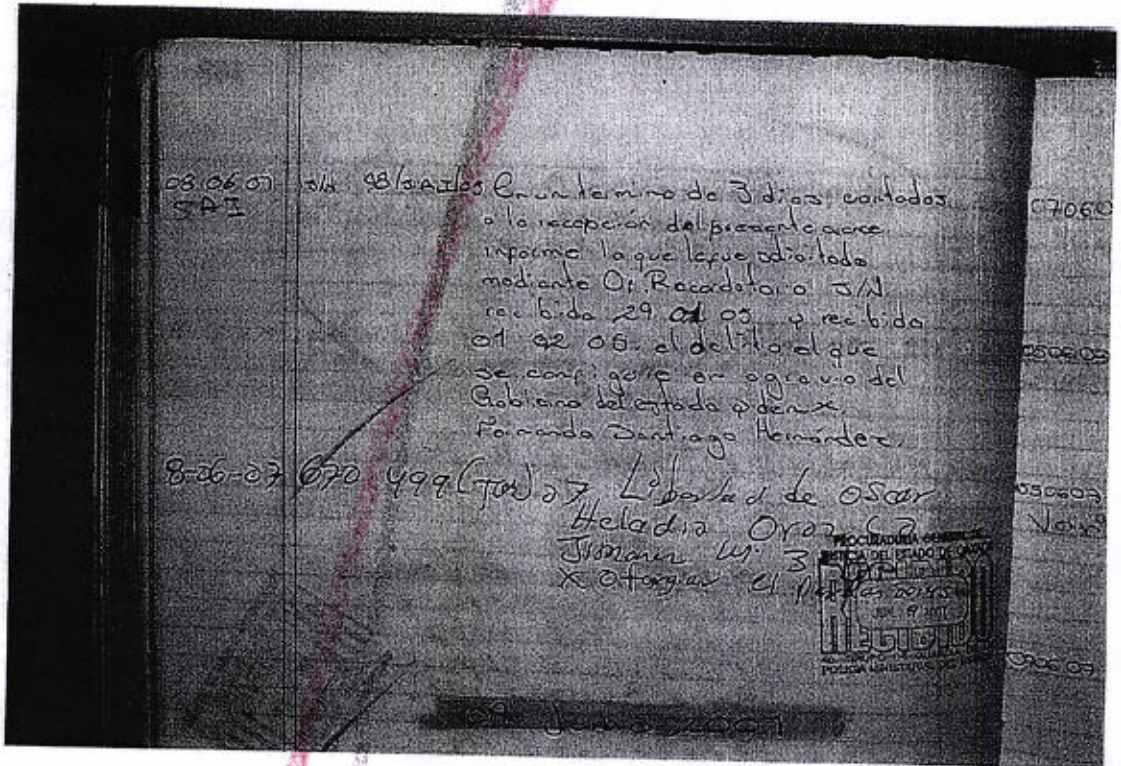 08 06 07 S/N 98/SAI/05 En un termino de 3 dias, contados
SAI
a la recepción del presente
informe lo que le fue solicitado
mediante Of. Recordatorio S/N
recibido 29 01 05 y recibido
01 02 06. el delito el que
se configure en agravio del
Gobierno del estado y den. x.
Fernando Santiago Hernández.
8-06-07 670 499 (TUR) 07 Libertad de Oscar
Heladio
Jimenez 3
x otorgar el
PROCURADURIA GENERAL DE
JUSTICIA DEL ESTADO DE OAXACA
RECIBIDO
2007
POLICIA MINISTERIAL DEL
09 Junio 2007
0706
050609
050607
0906 07